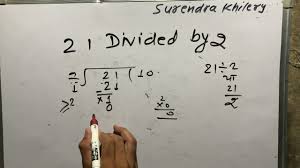 Surendra Khilery
21 Divided by 2
2) 21 (10
-2↓
×1
0
≥2
2
×0
0
21÷2
21
2